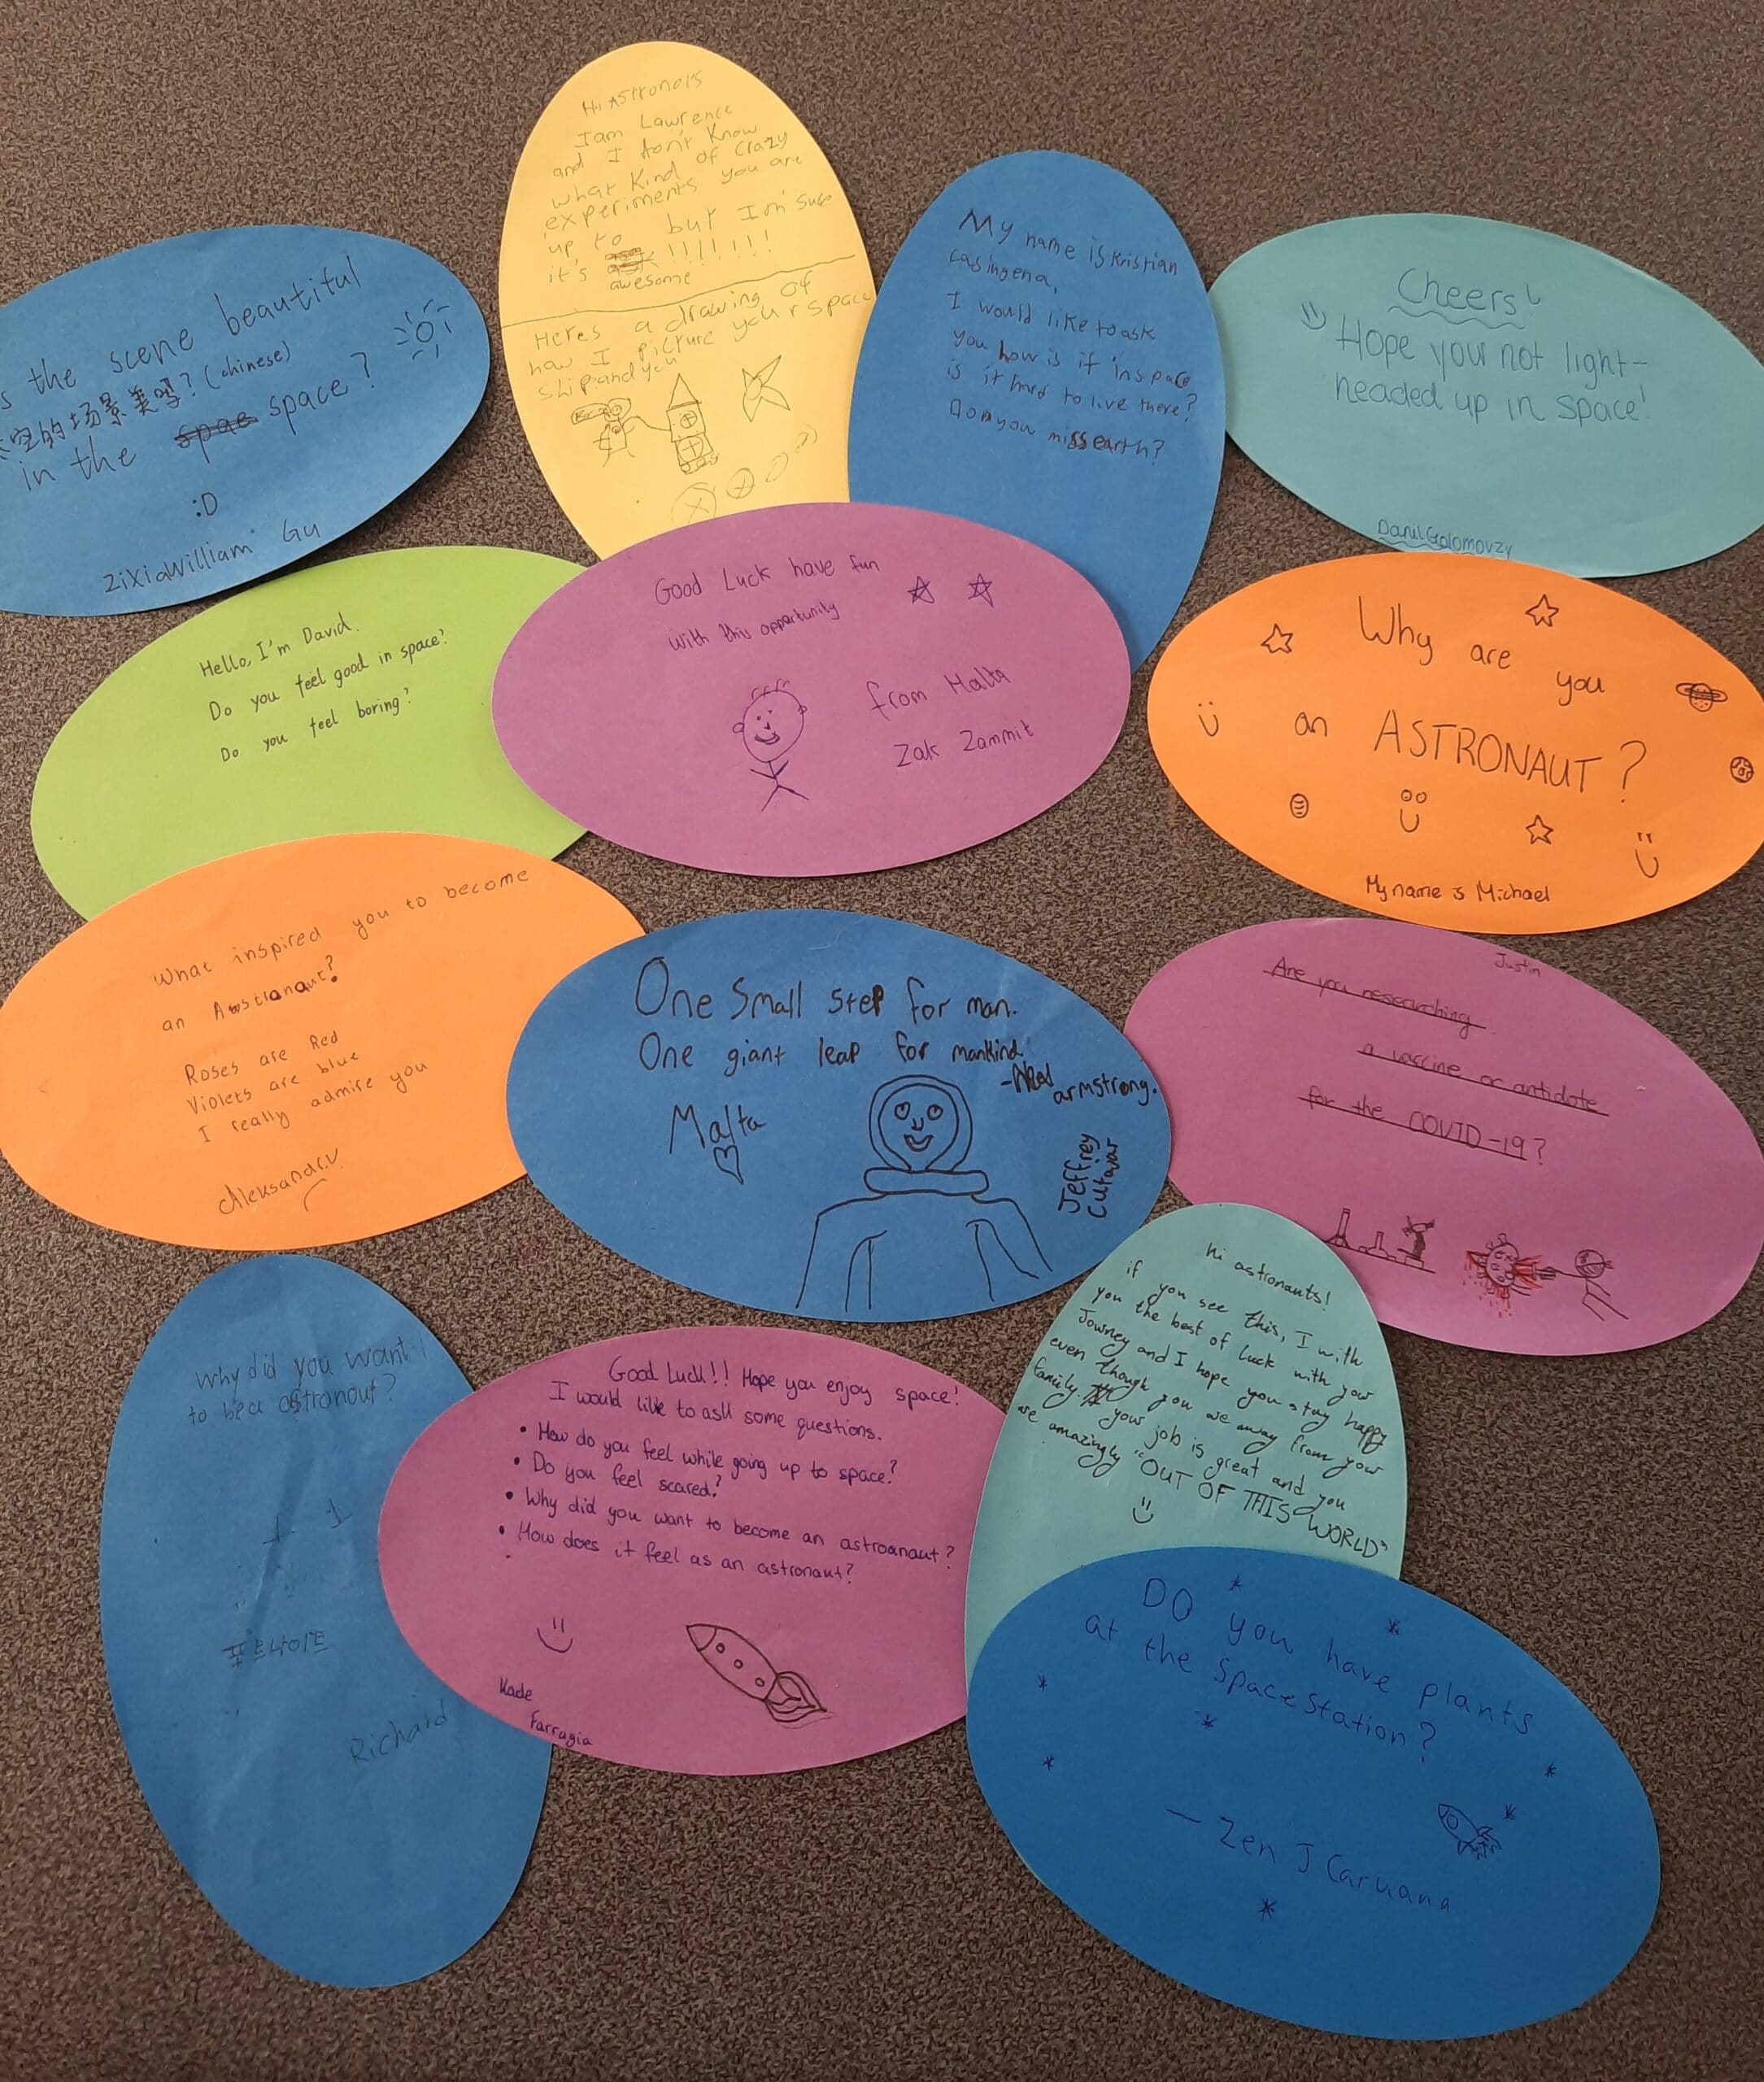 Hi Astronots
I am Lawrence
and I don't Know
what Kind of Crazy
experiments you are
up to but I'm sure
it's !!!!!!!
awesome
Heres a drawing of
how I picture your space
ship and you
My name is Kristian
Casingena,
I would like to ask
you how is if in space
is it hard to live there?
Don you miss earth?
Cheers!
Hope your not light-
headed up in space!
Danil Golomovzy
s the scene beautiful
空的场景美吗? (chinese)
in the spac space?
:D
Zixia William Gu
Hello, I'm David.
Do you feel good in space?
Do you feel boring?
Good Luck have fun
with this opportunity
from Malta
Zak Zammit
Why are
you
an ASTRONAUT?
My name is Michael
What inspired you to become
an Astronaut?
Roses are Red
Violets are blue
I really admire you
Aleksandr.V
One Small step for man.
One giant leap for mankind.
-Neal armstrong.
Malta
Jeffrey
Cutajar
Justin
Are you researching
a vaccine or antidote
for the COVID-19?
Hi astronauts!
if you see this, I with
you the best of luck with your
Journey and I hope you stay happy
even though you are away from your
family. your job is great and you
are amazingly "OUT OF THIS WORLD"
Why did you want
to be a astronout?
포트나이트
Richard
Good Luck!! Hope you enjoy space!
I would like to ask some questions.
• How do you feel while going up to space?
• Do you feel scared?
• Why did you want to become an astroanaut?
• How does it feel as an astronaut?
Kade
Farrugia
DO you have plants
at the Space Station?
— Zen J Caruana